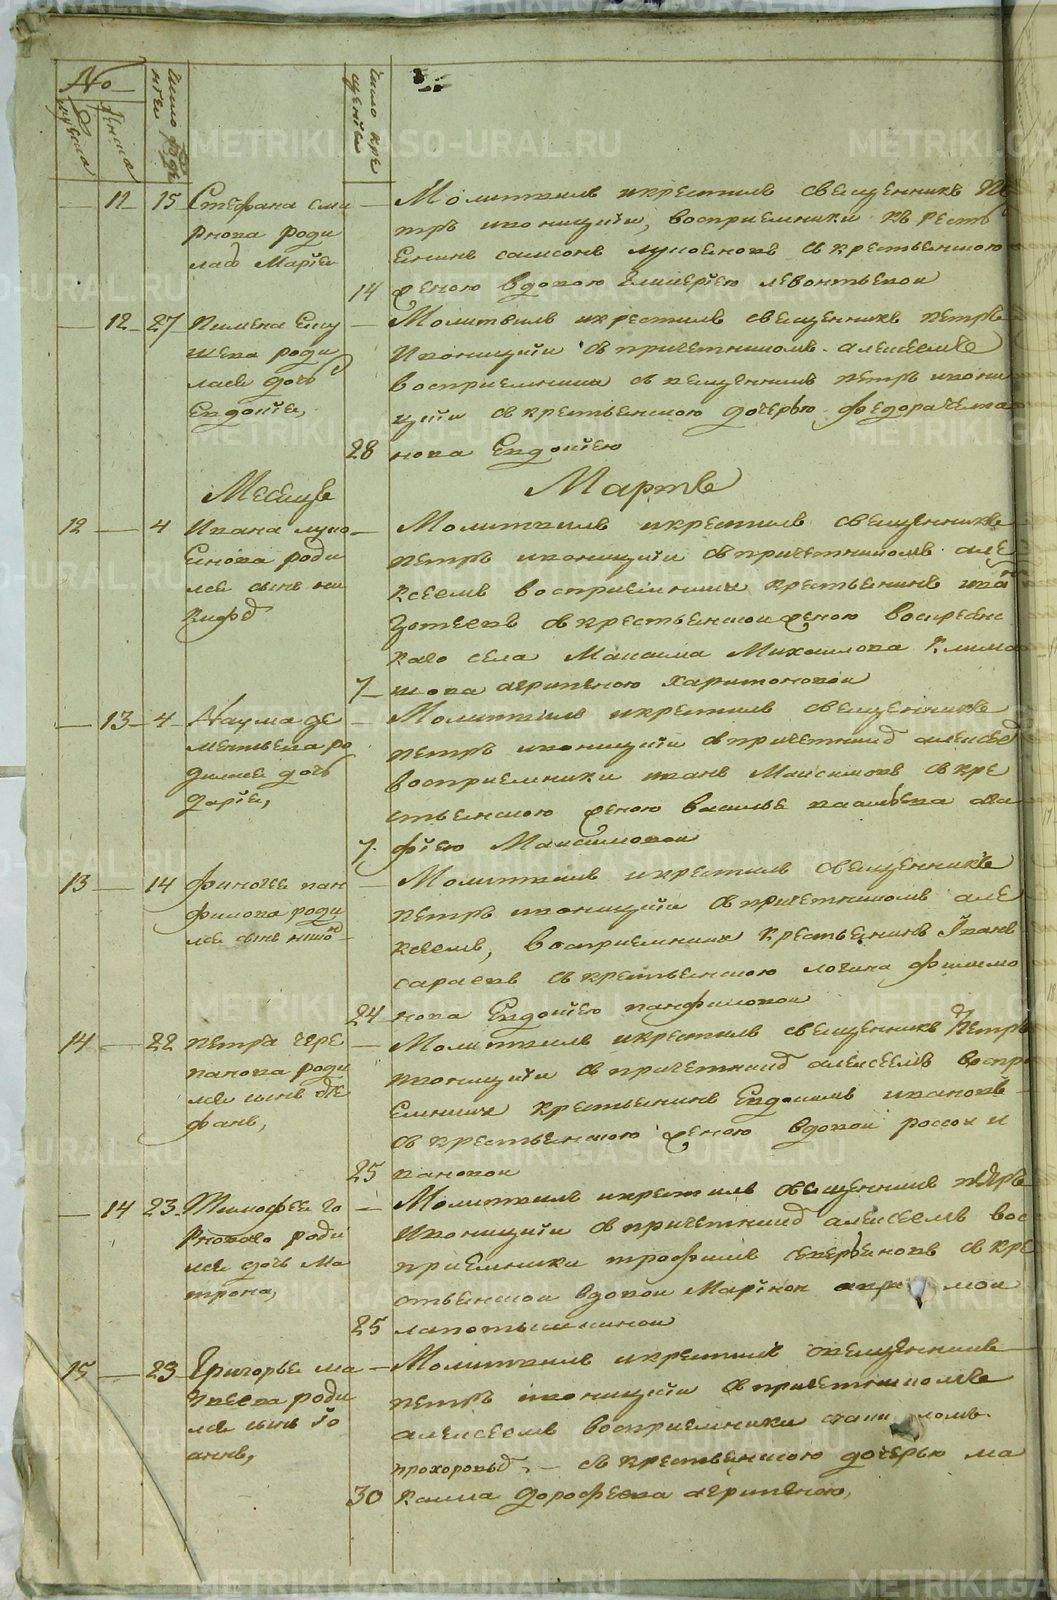 №
число рожде
нiя
число кре
щенiя
мужеска
женска
11 15 Стефана сми
рнова роди
лась Марiя
14
Молитвилъ и крестилъ священникъ Пе
тръ иконицкiи, восприемники кресть
енинъ самсонъ лукоеновъ с крестьенскою
женою вдовою гликерiею левонтьевои
12 27 Пимена Елу
роди
лась дочь
Евдокiя,
28
Молитвилъ и крестилъ священникъ петръ
Иконицкiи с причетникомъ алексеемъ
восприемники священникъ петръ икони
цкiи с крестьенскою дочерью федора
нова Евдокiею
Месяцъ
Мартъ
12 4 Ивана луко
енова роди
лся сынъ ни
кифор
7
Молитвилъ и крестилъ священникъ
петръ иконицкiи с причетникомъ але
ксеемъ восприемники крестьенинъ иван
зотеевъ с крестьенскои женою воскресенс
каго села Максима Михаилова Клима
шова агрипеною Харитоновои
13 4 Наума де
ментьева ро
дилась дочь
дарiя,
7
Молитвилъ и крестилъ священникъ
петръ иконицкiи с причетником алексеем
восприемники иванъ Максимовъ с кре
стьенскою женою василья савельева
фiею Максимовои
13 14 финогея пан
филова роди
лся сынъ никон
24
Молитвилъ и крестилъ священникъ
петръ иконицкiи с причетникомъ але
ксеемъ, восприемники крестьенинъ Iванъ
сараевъ с крестьенскою логина филимо
нова Евдокiею панфиловои
14 22 петра чере
панова роди
лся сынъ сте
фанъ,
25
Молитвилъ и крестилъ священникъ Петръ
иконицкiи с причетником алексеемъ воспри
емники крестьенинъ Евдокимъ ивановъ
с крестьенскою женою вдовои
вановои
14 23 Тимофея го
рноваго роди
лся дочь Ма
трона,
25
Молитвилъ и крестилъ священникъ петръ
Иконицкiи с причетником алексеемъ вос
приемники трофимъ северьеновъ с кре
стьенскои вдовои Марiнои
лапотышкинои
15 23 Григорья ма
твеева роди
лся сынъ Iо
аннъ,
30
Молитвилъ и крестилъ священникъ
петръ иконицкiи с причетникомъ
алексеемъ восприемники
прохоровъ, с крестьенскою дочерью ма
ксима дорофеева агрипеною,
METRIKI.GASO-URAL.RU